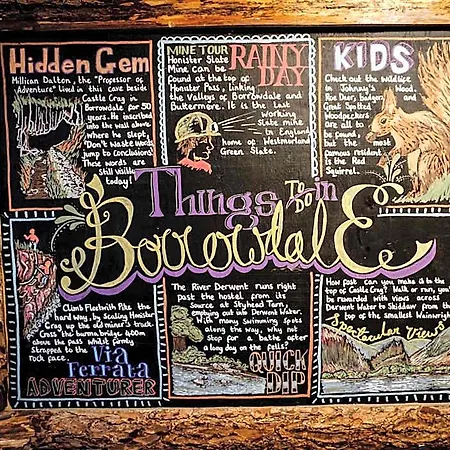 Hidden Gem
Millican Dalton, the "Professor of
Adventure" lived in this cave beside
Castle Crag in
Borrowdale for 50
years. He inscribed
into the wall above
where he slept,
"Don't waste words
jump to conclusions"
These words are
still visible
today!
MINE TOUR
RAINY
DAY
Honister Slate
Mine can be
found at the top of
Honister Pass, linking
the Valleys of Borrowdale and
Buttermere. It is the last
working
slate mine
in England
home of Westmorland
Green Slate.
KIDS
Check out the wildlife
in Johnny's Wood.
Roe Deer, badgers and
Great Spotted
Woodpeckers
are all to
be found,
but the most
famous resident
is the Red
Squirrel.
Things To Do in
BorrowdalE
Climb Fleetwith Pike the
hard way, by scaling Honister
Crag up the old miner's truck.
Cross the burma bridge
above the pass whilst firmly
strapped to the
rock face.
Via
Ferrata
ADVENTURER
The River Derwent runs right
past the hostel from its
Source at Styhead Tarn,
emptying out into Derwent Water.
With many Swimming Spots
along the way, why not
stop for a bathe after
a long day on the fells?
QUICK
DIP
How fast can you make it to the
top of Castle Crag? Walk or run, you'll
be rewarded with views across
Derwent Water to Skiddaw from the
top of the smallest Wainwright
Spectacular Views